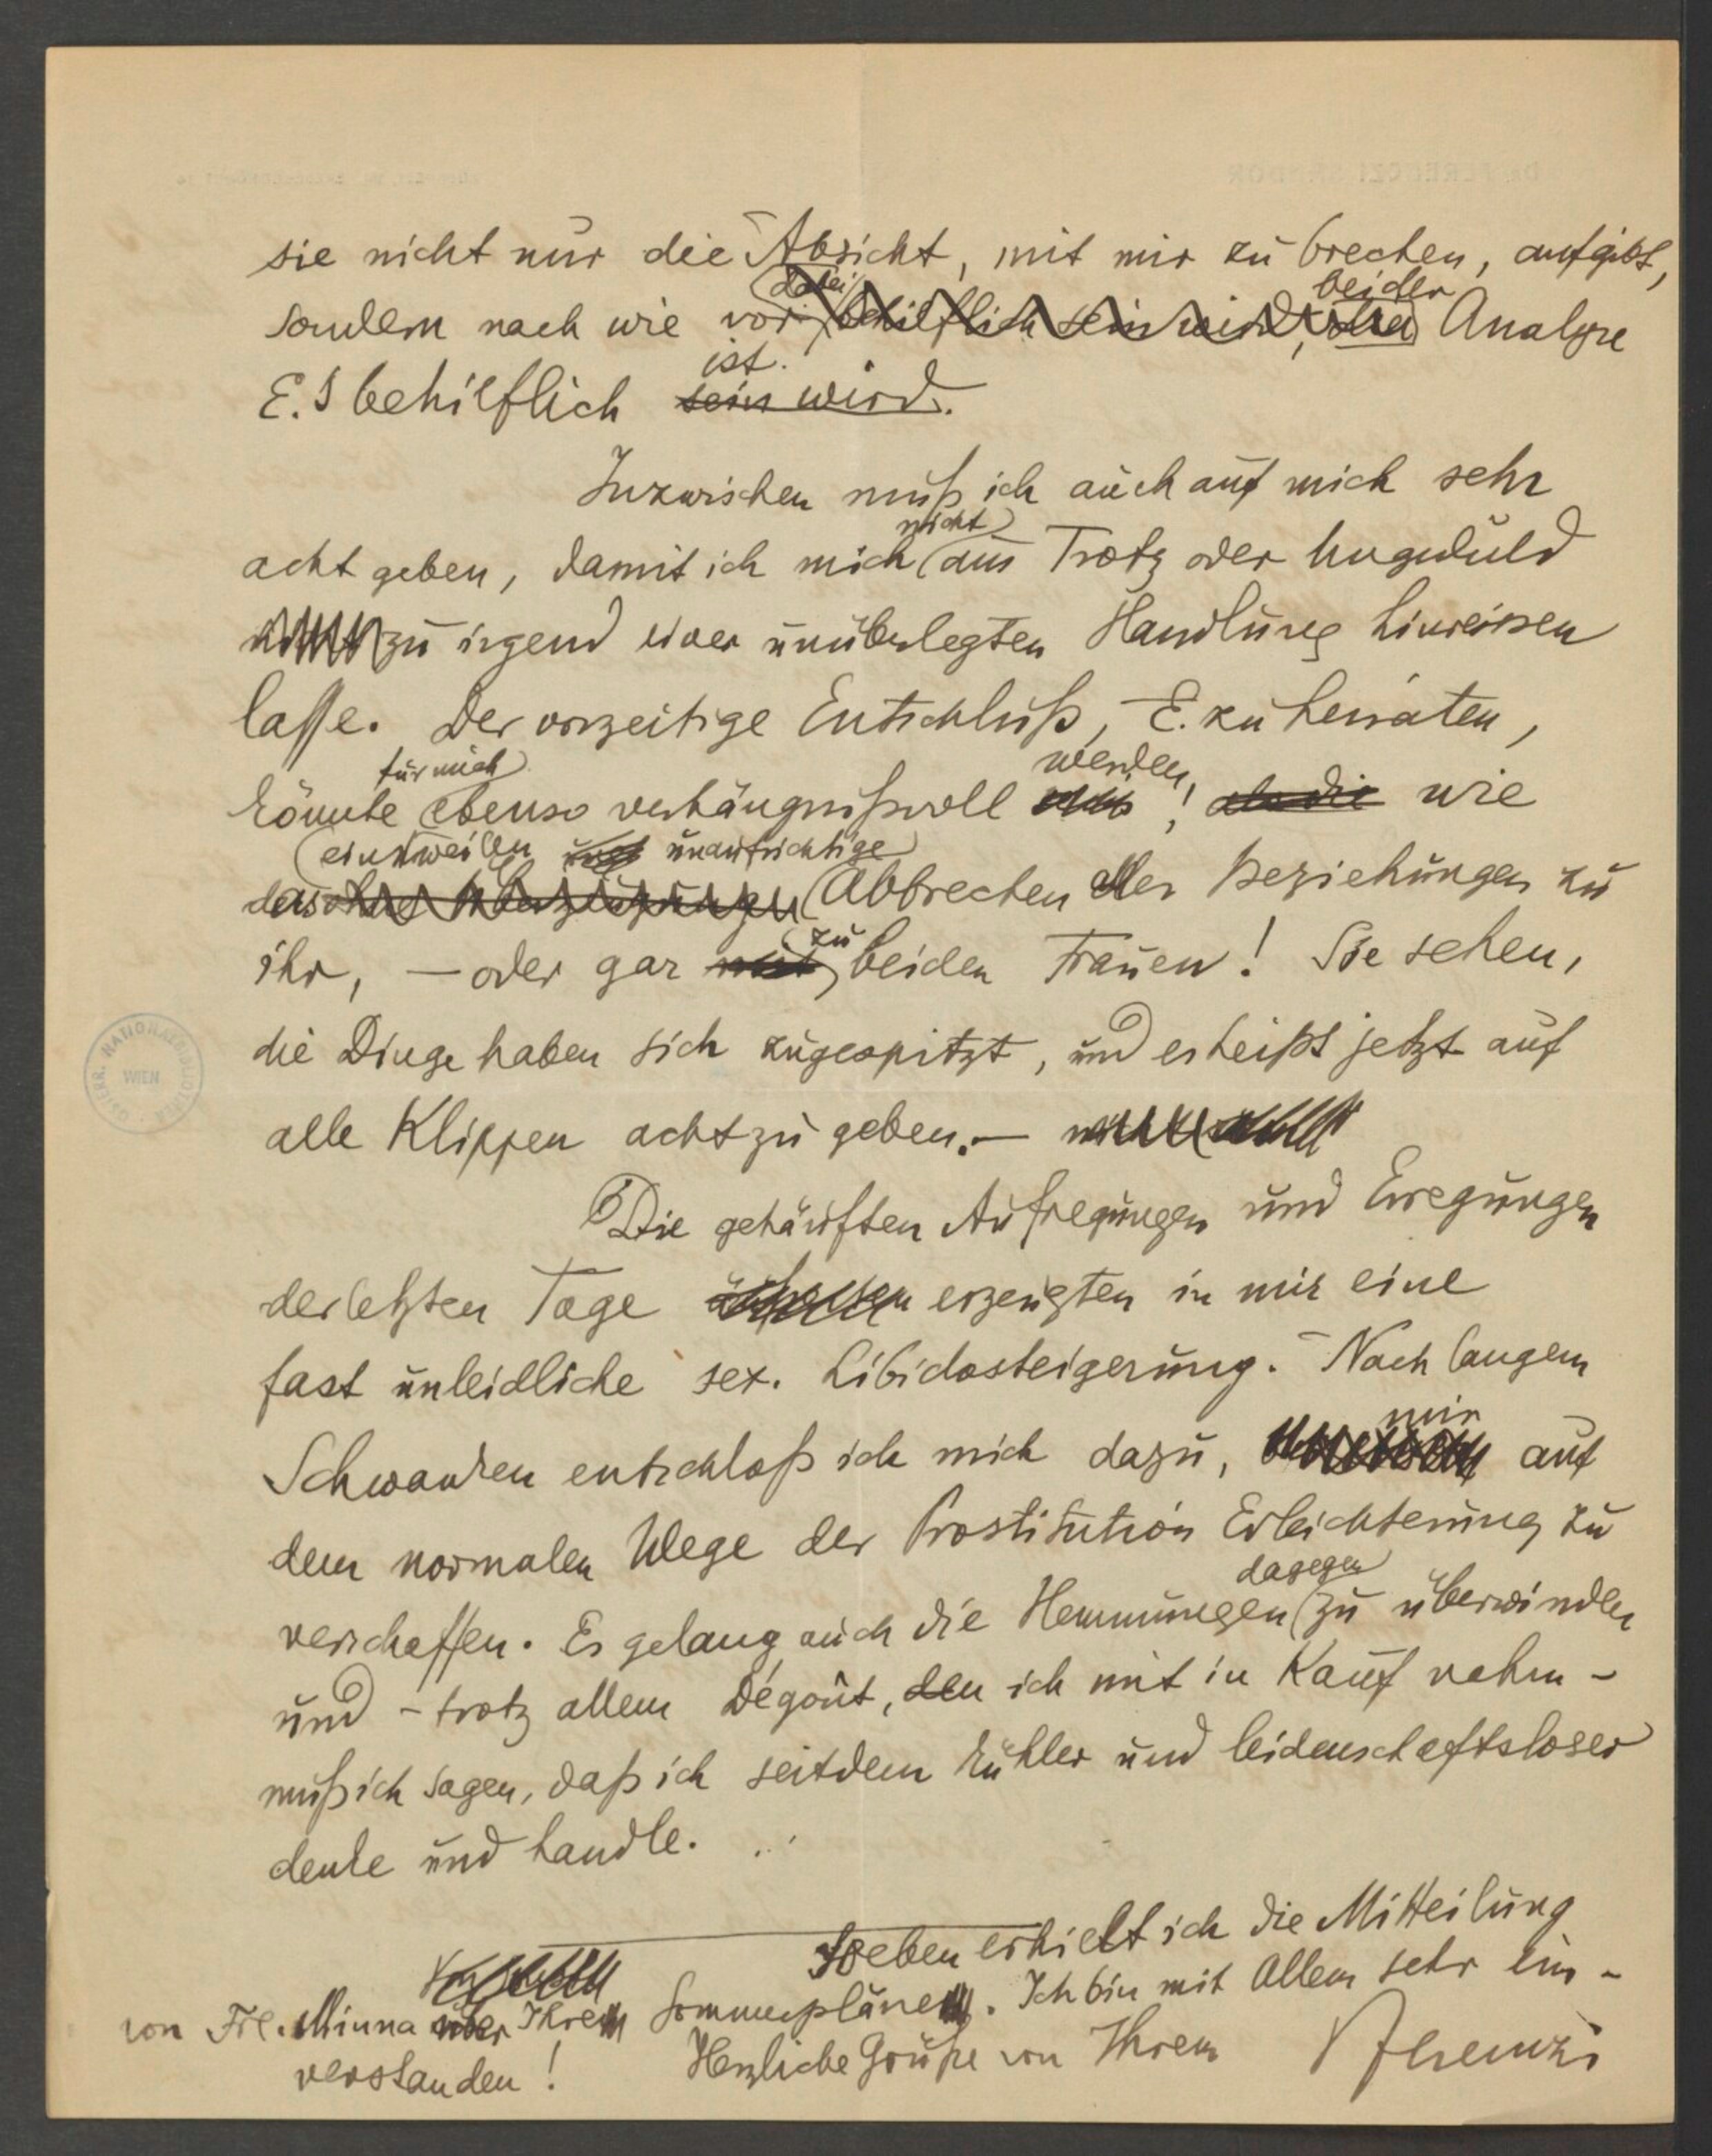 sie nicht nur die Absicht, mit mir zu brechen, aufgibt,
sondern nach wie vor (dabei behilflich sein wird, der) bei der Analyse
E.s behilflich sein wird. ist.
Inzwischen muß ich auch auf mich sehr
acht geben, damit ich mich (nicht) aus Trotz oder Ungeduld
nicht zu irgend einer unüberlegten Handlung hinreissen
lasse. Der vorzeitige Entschluß, E. zu heiraten,
könnte (für mich) ebenso verhängnißvoll sein werden, als die wie
das ohne Überzeugung (einstweilen und unaufrichtige) Abbrechen aller Beziehungen zu
ihr, – oder gar mit zu beiden Frauen! Sie sehen,
die Dinge haben sich zugespitzt, und es heißt jetzt auf
alle Klippen acht zu geben. –
Die gehäuften Aufregungen und Erregungen
der letzten Tage erzeugten in mir eine
fast unleidliche sex. Libidosteigerung. – Nach langem
Schwanken entschloß ich mich dazu, mir auf
dem normalen Wege der Prostitution Erleichterung zu
verschaffen. Es gelang auch die Hemmungen (dagegen) zu überwinden
und – trotz allem Dégoût, den ich mit in Kauf nahm –
muß ich sagen, daß ich seitdem kühler und leidenschaftsloser
denke und handle.
Soeben erhielt ich die Mitteilung
von Frl. Minna über Ihre Sommerpläne. Ich bin mit Allem sehr ein-
verstanden! Herzliche Grüße von Ihrem Ferenczi
ÖSTERR. NATIONALBIBLIOTHEK · WIEN